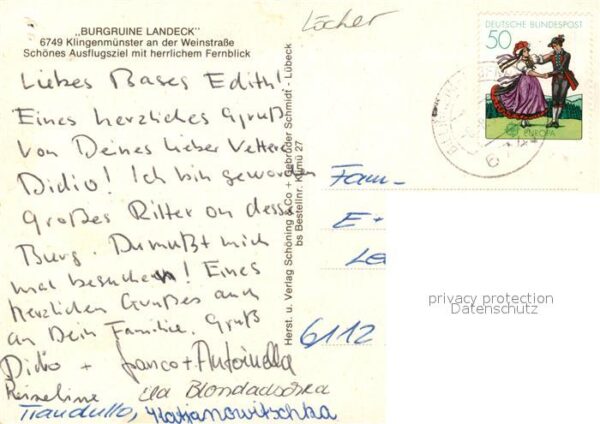 „BURGRUINE LANDECK"
6749 Klingenmünster an der Weinstraße
Schönes Ausflugsziel mit herrlichem Fernblick
Liebes Bases Edith!
Eines herzliches Gruß
von Deines lieber Vettere
Didio! Ich bin geworden
großes Ritter on dessa
Burg. Du mußt mich
mal besuchen! Eines
herzlichen Grußes auch
an Dein Familie. Gruß
Didio + Franco + Antoinella
Ila Blondadschka
Tiandullo, Katjanowitschka
Herst. u. Verlag Schöning & Co + Gebrüder Schmidt - Lübeck
bs Bestellnr. Klmü 27
Löcher
DEUTSCHE BUNDESPOST
50
EUROPA
Fam-
E +
6112
privacy protection
Datenschutz